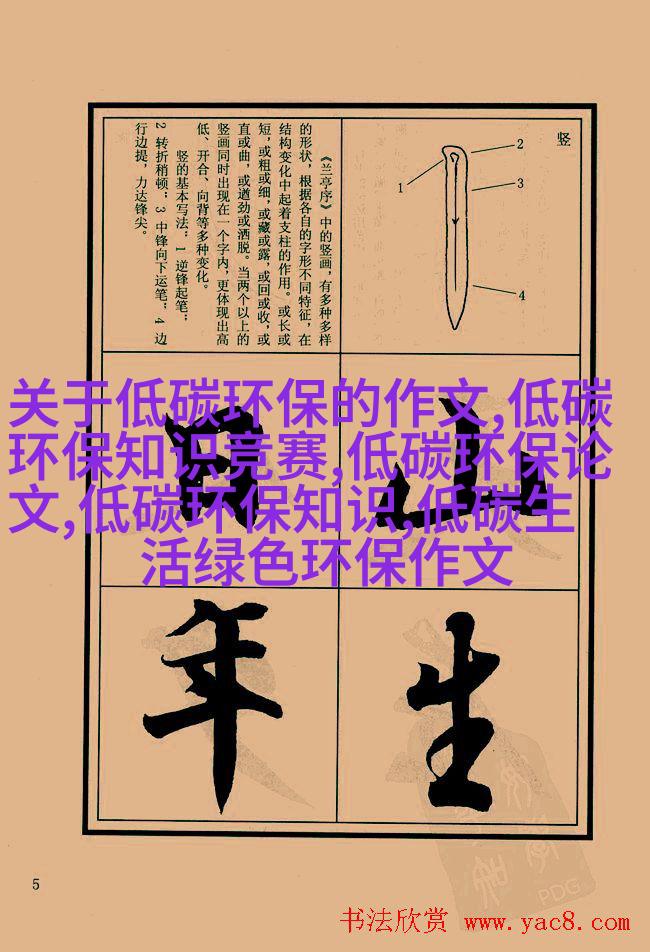 竖
1
2
3
4
《兰亭序》中的竖画，有多种多样
的形状，根据各自的字形不同特征，在
结构变化中起着支柱的作用。或长或
短，或粗或细，或藏或露，或回或收，或
直或曲，或遒劲或洒脱。当两个以上的
竖画同时出现在一个字内，更体现出高
低、开合、向背等多种变化。
竖的基本写法：1 逆锋起笔；
2 转折稍顿；3 中锋向下运笔；4 边
行边提，力达锋尖。
关于低碳环保的作文,低碳
环保知识竞赛,低碳环保论
文,低碳环保知识,低碳生
活绿色环保作文
山
生
年
5
PDG
书法欣赏 www.yac8.com